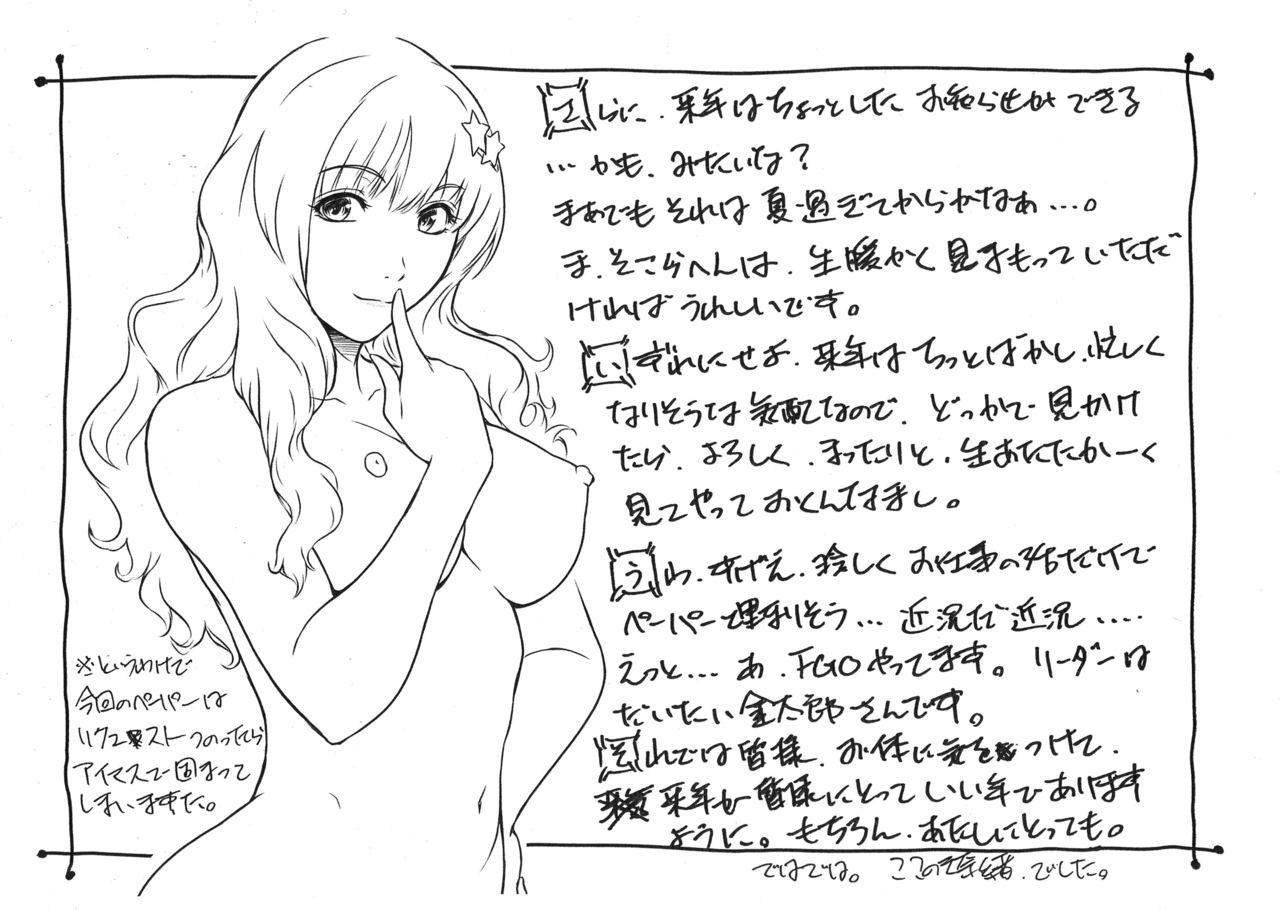 さらに、来年はちょっとした お知らせができる
…かも、みたいな？
まあでも それは 夏過ぎてからかなぁ…。
ま、そこらへんは、生暖かく 見まもって いただだ
ければ うれしいです。
いずれにせよ、来年は ちっとばかし、忙しく
なりそうな 気配なので、どっかで 見かけ
たら、よろしく、まったりと、生あたたかーく
見てやって おくんなまし。
うわ、すげえ、珍しく お仕事の話だけで
ペーパー埋まりそう… 近況だ 近況….
えっと… あ、FGO やってます。リーダーは
だいたい 金太郎さんです。
それでは 皆様、お体に 気を つけて、
来年が 皆様にとって いい年で あります
ように。もちろん、あたしにとっても。
ではでは。 ここのき奈緒、でした。
※というわけで
今回のペーパーは
リクエスト つのったら
アイマスで 固まって
しまいました。